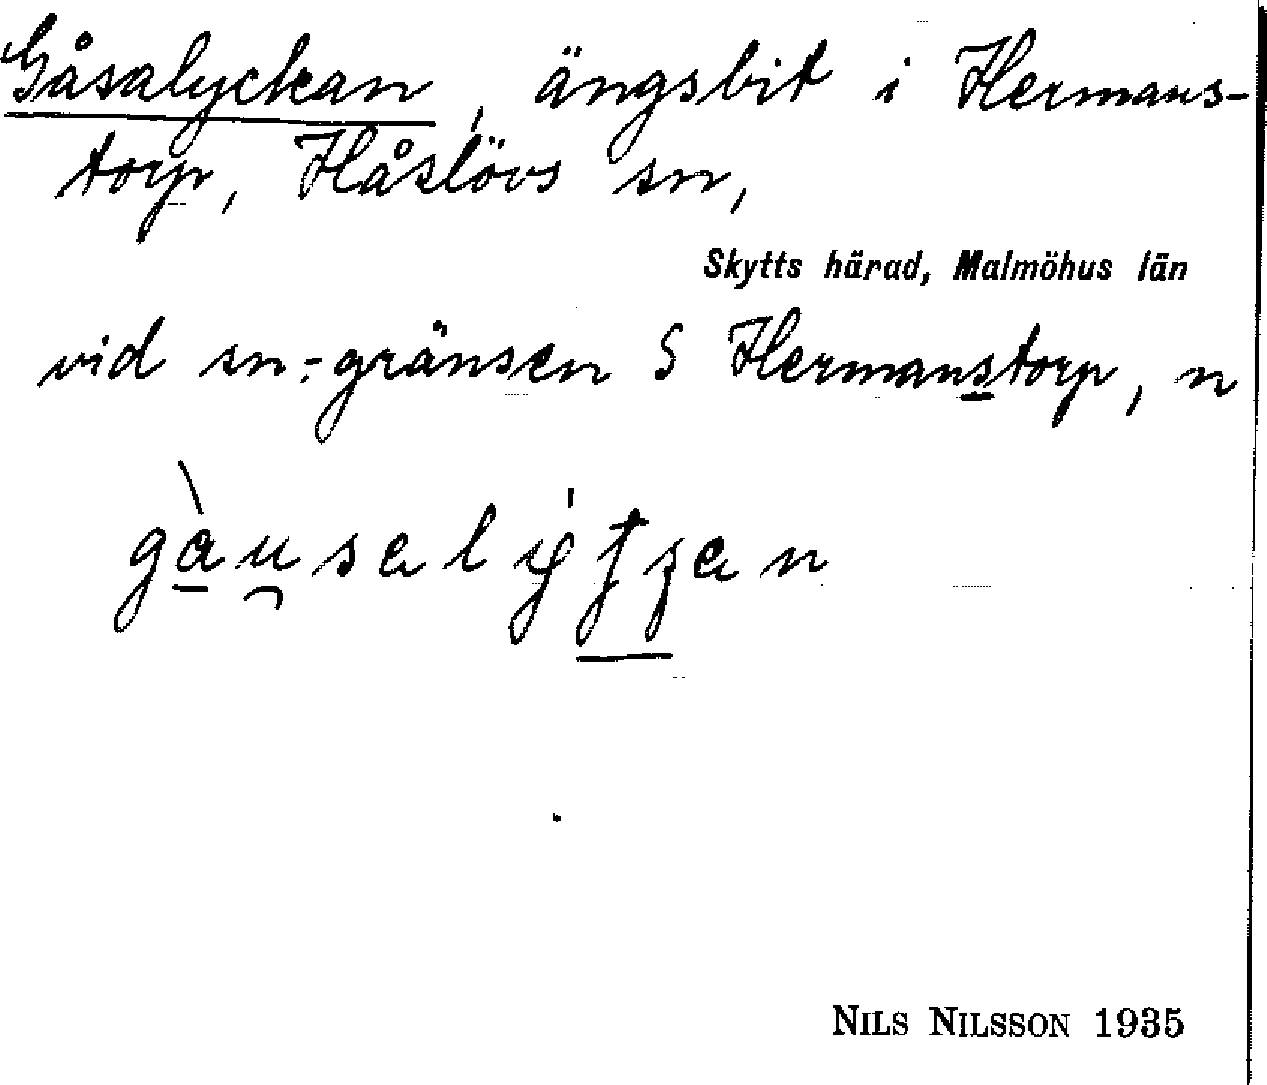 Gåsalyckan, ängsbit i Hermans-
torp, Håslövs sn,
Skytts härad, Malmöhus län
vid sn-gränsen S Hermanstorp, n
NILS NILSSON 1935